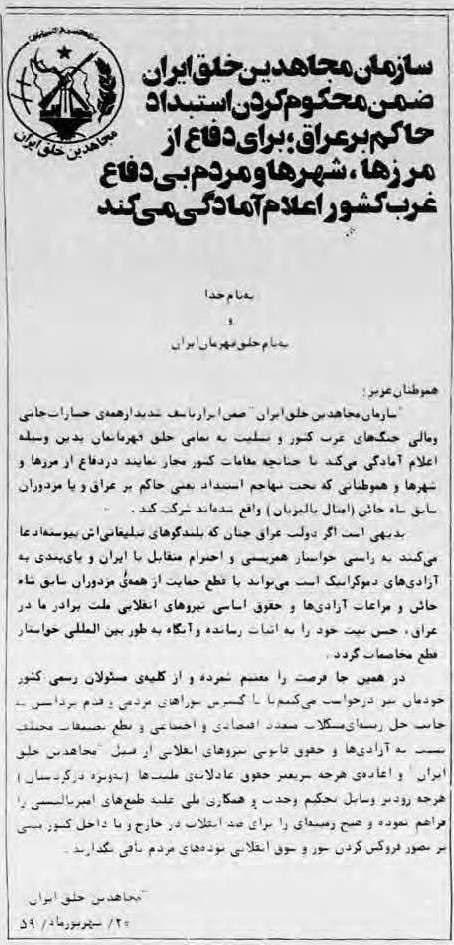 مجاهدین خلق ایران
سازمان مجاهدین خلق ایران
ضمن محکوم کردن استبداد
حاکم بر عراق؛ برای دفاع از
مرزها، شهرها و مردم بی دفاع
غرب کشور اعلام آمادگی می کند
به نام خدا
و
به نام خلق قهرمان ایران
هموطنان عزیز؛
"سازمان مجاهدین خلق ایران" ضمن ابراز تاسف شدید از همه‌ی خسارات جانی
و مالی جنگ‌های غرب کشور و تسلیت به تمامی خلق قهرمانمان بدین وسیله
اعلام آمادگی می‌کند تا چنانچه مقامات کشور مجاز نمایند در دفاع از مرزها و
شهرها و هموطنانی که تحت تهاجم استبداد بعثی حاکم بر عراق و یا مزدوران
سابق شاه خائن (امثال پالیزبان) واقع شده‌اند شرکت کند.
بدیهی است اگر دولت عراق چنان که بلندگوهای تبلیغاتی‌اش پیوسته ادعا
می‌کنند به راستی خواستار همزیستی و احترام متقابل با ایران و پای‌بندی به
آزادی‌های دموکراتیک است می‌تواند با قطع حمایت از همه‌ی مزدوران سابق شاه
خائن و مراعات آزادی‌ها و حقوق اساسی نیروهای انقلابی ملت برادر ما در
عراق، حسن نیت خود را به اثبات رسانده و آنگاه به طور بین المللی خواستار
قطع مخاصمات گردد.
در همین جا فرصت را مغتنم شمرده و از کلیه‌ی مسئولان رسمی کشور
خودمان نیز درخواست می‌کنیم تا با گسترش شوراهای مردمی و قدم برداشتن به
جانب حل ریشه‌ای مشکلات متعدد اقتصادی و اجتماعی و قطع تضییقات مختلف
نسبت به آزادی‌ها و حقوق قانونی نیروهای انقلابی از قبیل "مجاهدین خلق
ایران" و اعاده‌ی هرچه سریعتر حقوق عادلانه‌ی ملیت‌ها (به‌ویژه در کردستان)
هرچه زودتر وسایل تحکیم وحدت و همکاری ملی علیه طمع‌های امپریالیستی را
فراهم نموده و هیچ زمینه‌ای را برای ضد انقلاب در خارج و یا داخل کشور مبنی
بر تصور فروکش کردن شور و شوق انقلابی توده‌های مردم باقی نگذارید.
"مجاهدین خلق ایران
۲۰/ شهریورماه/ ۵۹